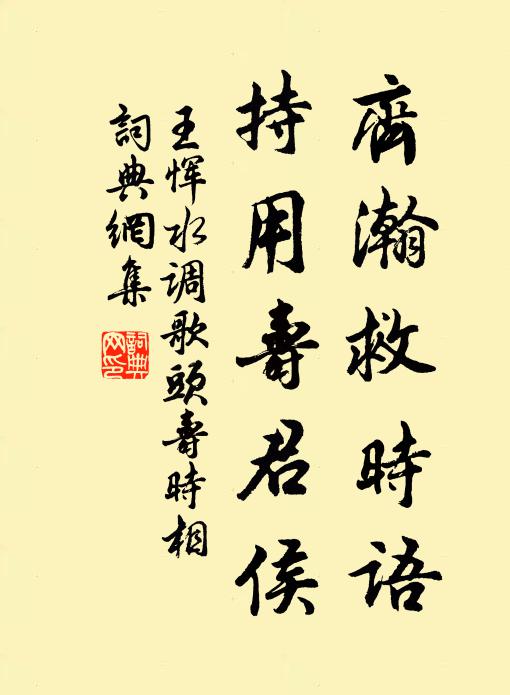 齊瀚救時語
持用壽君侯
王惲水调歌頭壽時相
詞典網集
詞典网印